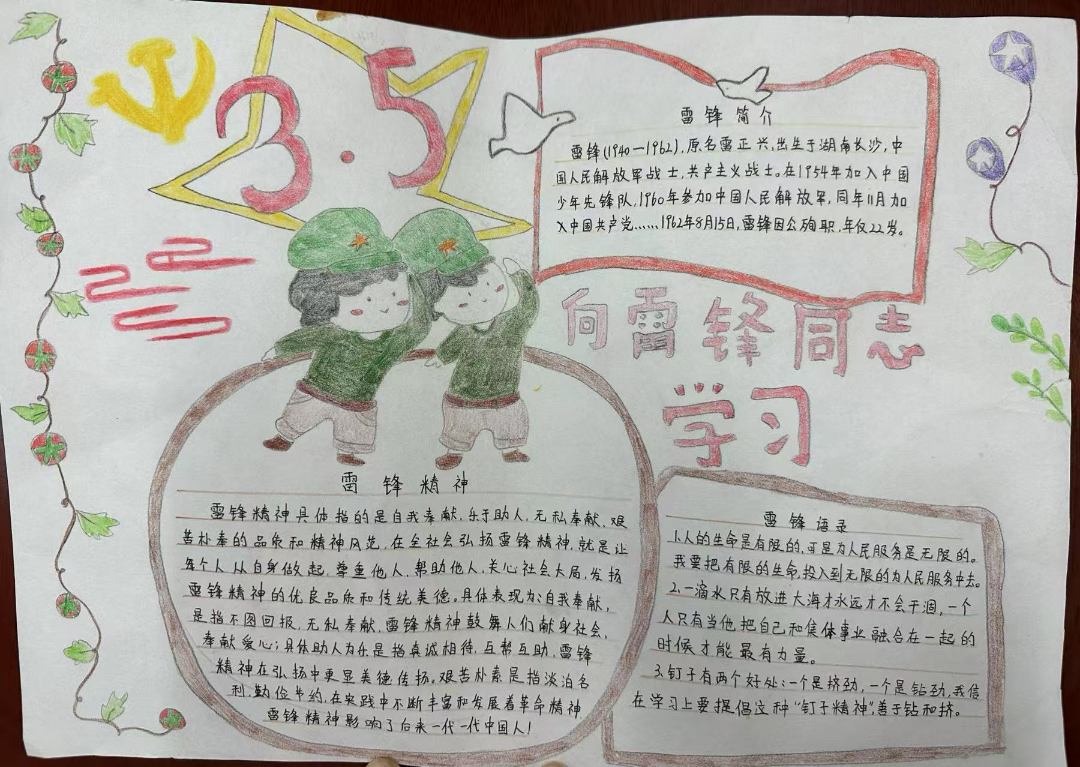 3.5
雷锋简介
雷锋(1940—1962),原名雷正兴,出生于湖南长沙,中
国人民解放军战士,共产主义战士。在1954年加入中国
少年先锋队,1960年参加中国人民解放军,同年11月加
入中国共产党……1962年8月15日,雷锋因公殉职,年仅22岁。
向雷锋同志
学习
雷锋精神
雷锋精神具体指的是自我奉献,乐于助人,无私奉献,艰
苦朴奉的品质和精神风范,在全社会弘扬雷锋精神,就是让
每个人从自身做起,尊重他人,帮助他人,关心社会大局,发扬
雷锋精神的优良品质和传统美德。具体表现为:自我奉献,
是指不图回报,无私奉献,雷锋精神鼓舞人们献身社会,
奉献爱心;具体助人为乐是指真诚相待,互帮互助,雷锋
精神在弘扬中更显美德传扬。艰苦朴素是指淡泊名
利,勤俭节约,在实践中不断丰富和发展着革命精神
雷锋精神影响了后来一代一代中国人!
雷锋语录
1.人的生命是有限的,可是为人民服务是无限的。
我要把有限的生命,投入到无限的为人民服务中去。
2.一滴水只有放进大海才永远才不会干涸,一个
人只有当他把自己和集体事业融合在一起的
时候才能最有力量。
3.钉子有两个好处:一个是挤劲,一个是钻劲,我信
在学习上要提倡这种"钉子精神",善于钻和挤。